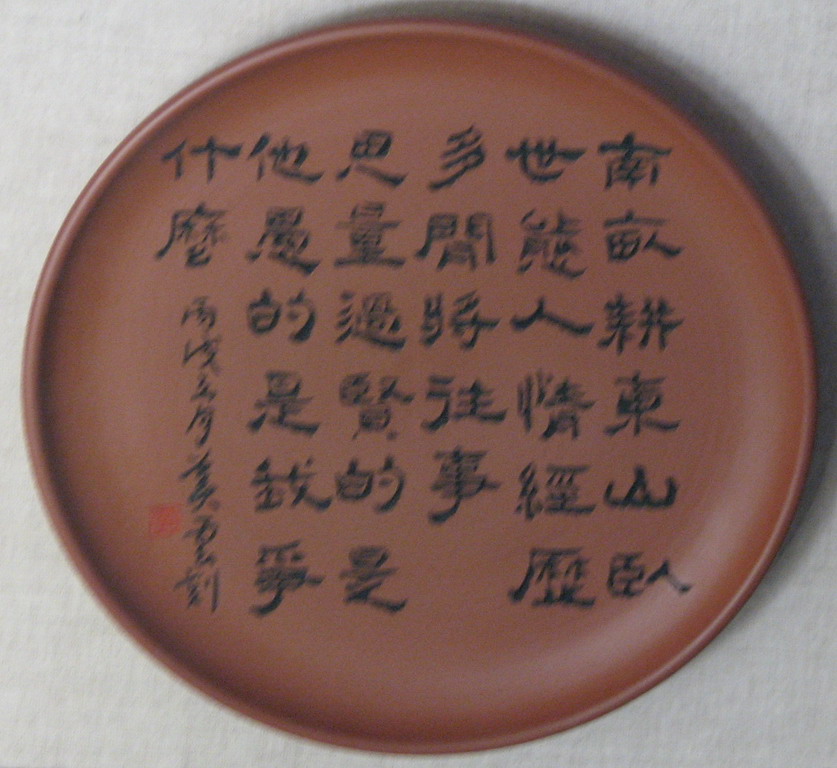 南畝耕東山臥
世態人情經歷
多閒將往事
思量過賢的是
他愚的是我爭
什麼
丙戌 刻